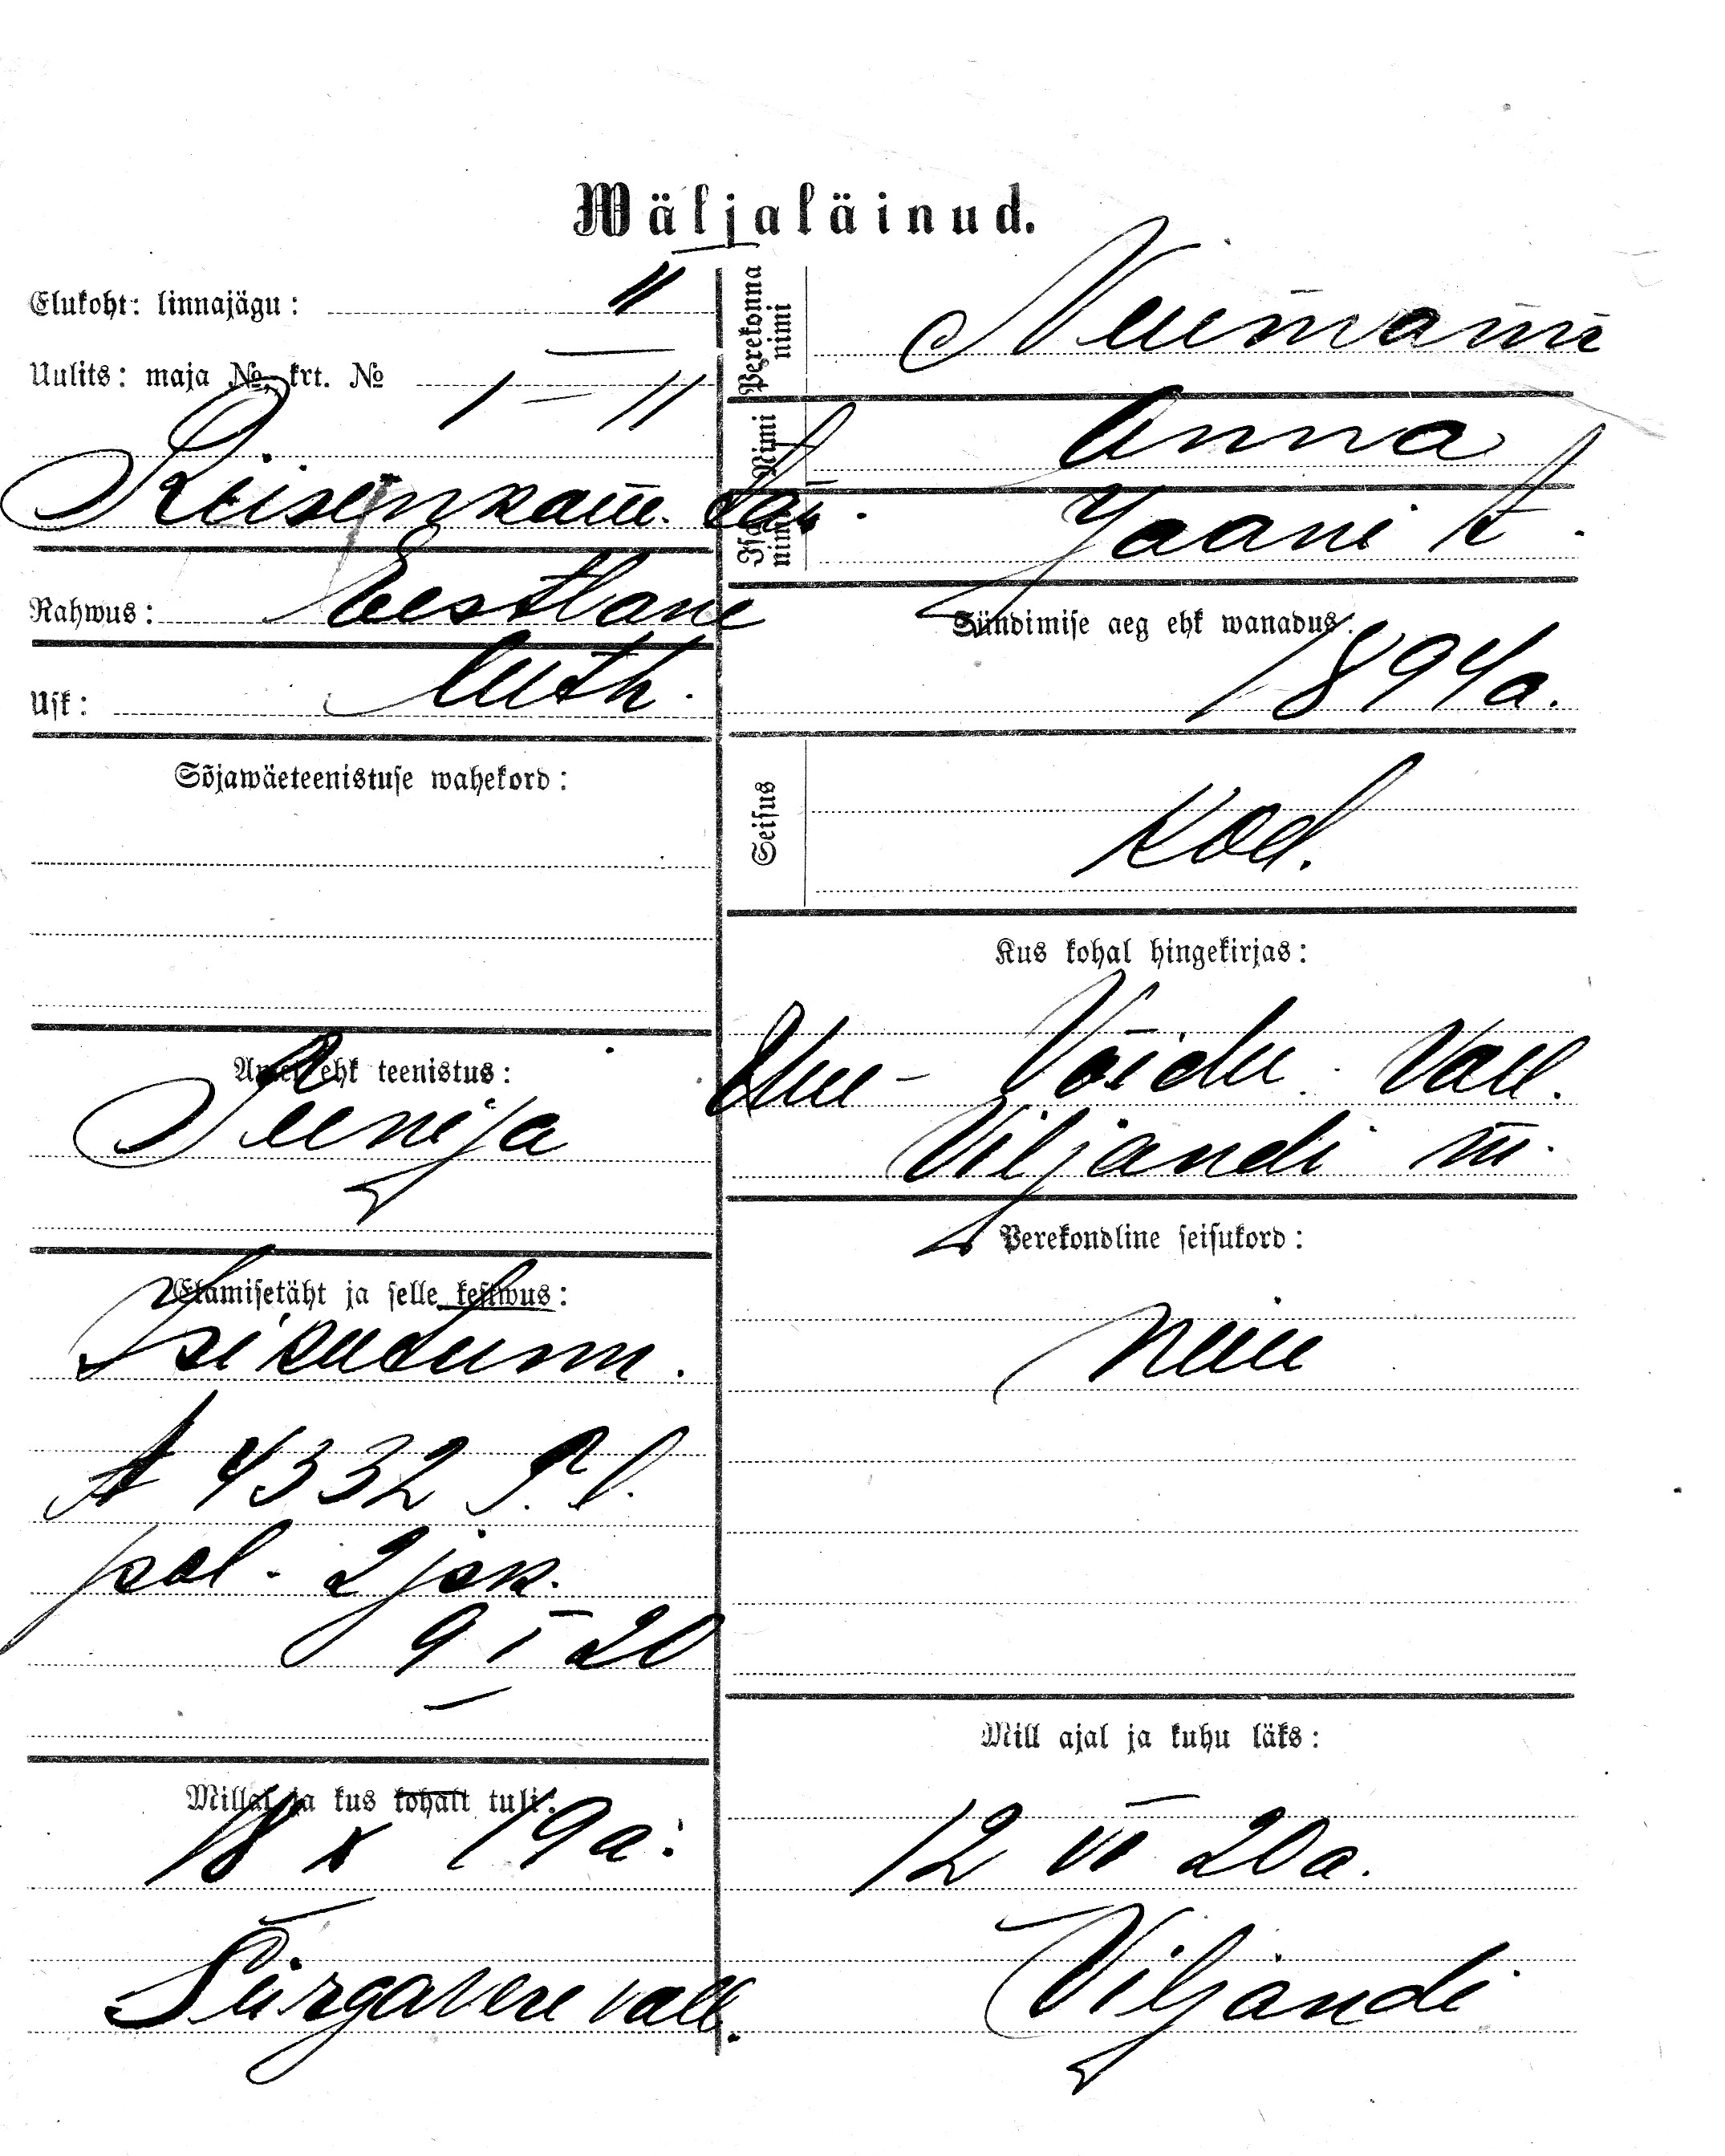 Wäljaläinud.
Elukoht: linnajägu: II
Uulits: maja № krt. № 1 – 11
Rahwus: Eestlane
Usk: luth.
Sõjawäeteenistuse wahekord:
Amet ehk teenistus:
Teenija
Elamisetäht ja selle kestwus:
Isikutunn.
A 4332
pol. 2 jsk.
9 I 20
Millal ja kus kohalt tuli:
18 X 19a.
Sürgavere vald.
Perekonna nimi Neumann
Nimi Anna
Isa nimi Jaani t.
Sündimise aeg ehk wanadus:
1894a.
Seisus kod.
Kus kohal hingekirjas:
Uue-Võidu vall.
Viljandi m.
Perekondline seisukord:
neiu
Mill ajal ja kuhu läks:
12 VI 20a.
Viljandi